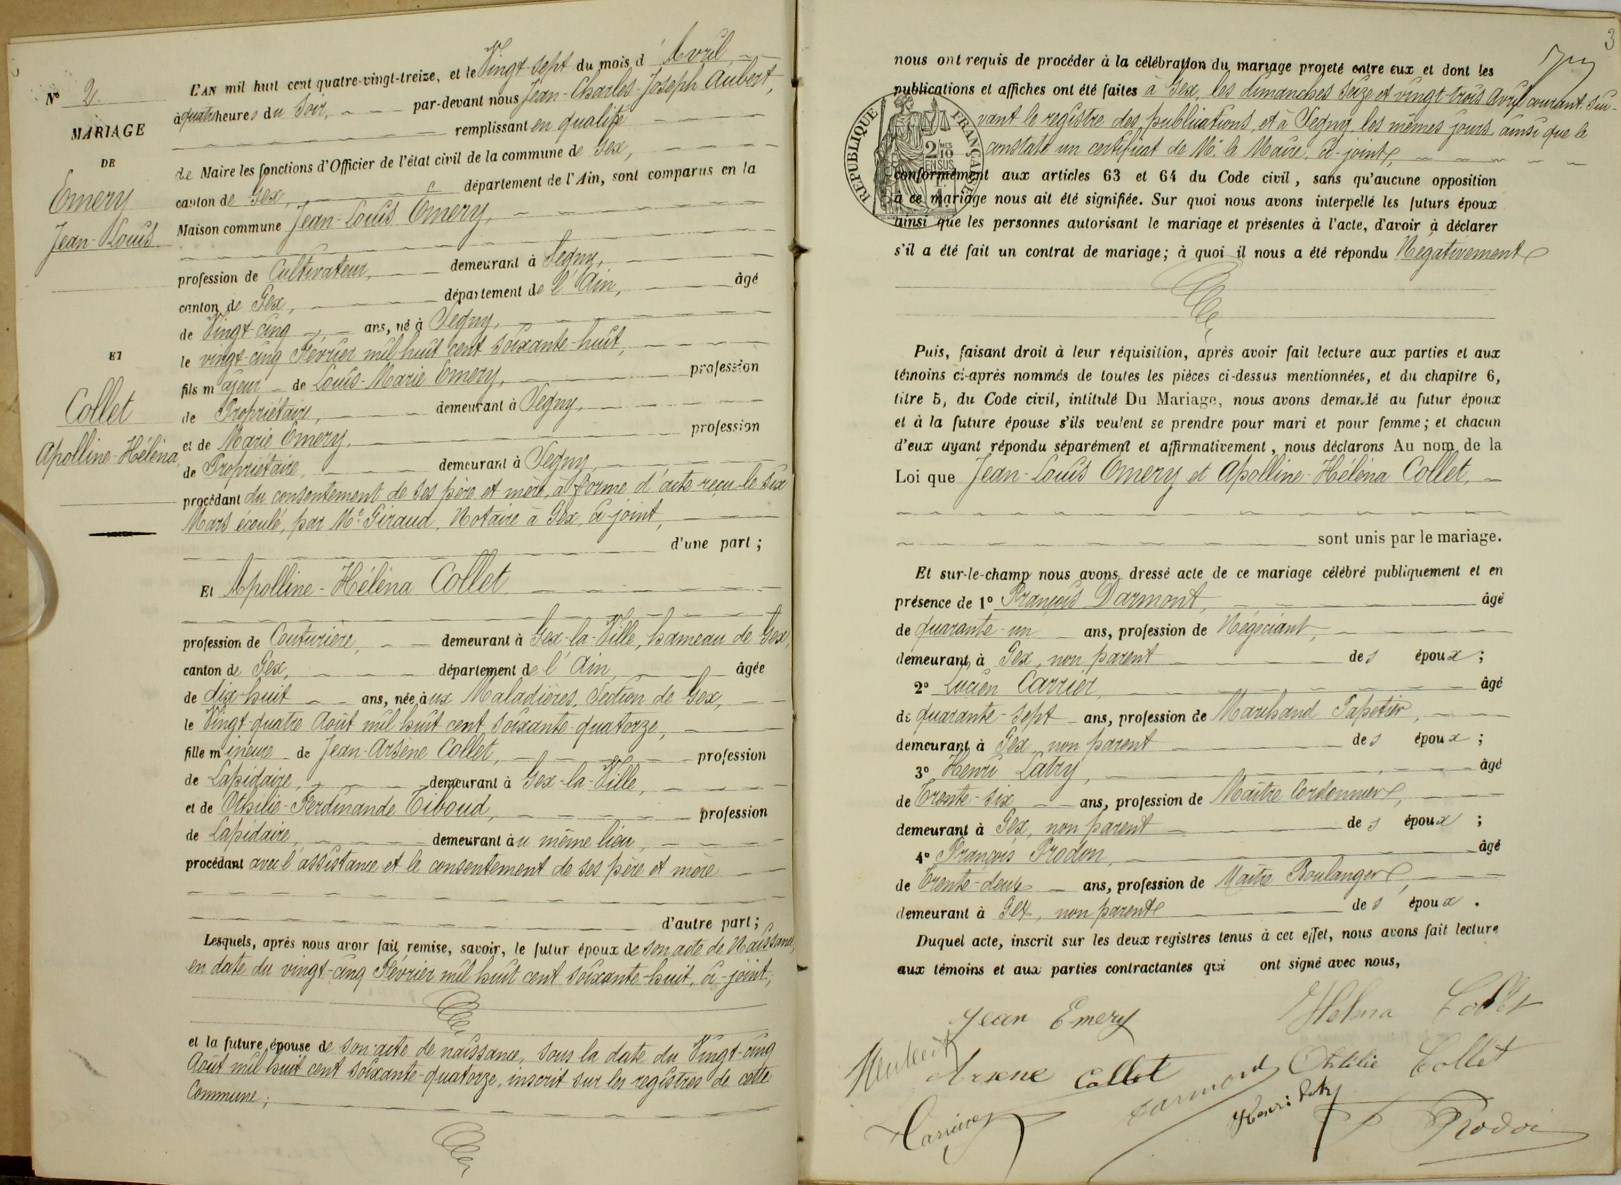 Nº 2
MARIAGE
DE
Emery
Jean-Louis
ET
Collet
Apolline-Héléna
L'AN mil huit cent quatre-vingt-treize, et le Vingt-sept du mois d'Avril,
à quatre heures du Soir, par-devant nous Jean-Charles-Joseph Aubert,
remplissant en qualité
de Maire les fonctions d'Officier de l'état civil de la commune de Gex,
canton de Gex, département de l'Ain, sont comparus en la
Maison commune Jean-Louis Emery,
profession de Cultivateur, demeurant à Segny,
canton de Gex, département de l'Ain, âgé
de Vingt-cinq ans, né à Segny,
le vingt-cinq Février mil huit cent soixante-huit,
fils majeur de Louis-Marie Emery, profession
de Propriétaire, demeurant à Segny,
et de Marie Emery, profession
de Propriétaire, demeurant à Segny
procédant du consentement de ses père et mère, à forme d'acte reçu le six
Mars écoulé, par Me Giraud, Notaire à Gex, ci-joint,
d'une part ;
Et Apolline-Héléna Collet
profession de Couturière, demeurant à Gex-la-Ville, hameau de Gex,
canton de Gex, département de l'Ain, âgée
de dix-huit ans, née aux Maladières, Section de Gex,
le Vingt-quatre Août mil huit cent soixante-quatorze,
fille mineure de Jean-Arsène Collet, profession
de Lapidaire, demeurant à Gex-la-Ville,
et de Othilie-Ferdinande Tiboud, profession
de Lapidaire, demeurant au même lieu,
procédant avec l'assistance et le consentement de ses père et mère
d'autre part ;
Lesquels, après nous avoir fait remise, savoir, le futur époux de son acte de Naissance,
en date du vingt-cinq Février mil huit cent soixante-huit, ci-joint,
et la future épouse de son acte de naissance, sous la date du Vingt-cinq
Août mil huit cent soixante-quatorze, inscrit sur les registres de cette
Commune ;
3
nous ont requis de procéder à la célébration du mariage projeté entre eux et dont les
publications et affiches ont été faites à Gex, les dimanches Seize et vingt-trois Avril courant sui-
vant le registre des publications, et à Segny, les mêmes jours ainsi que le
constate un certificat de Mr le Maire, ci-joint,
RÉPUBLIQUE FRANÇAISE
2/10 EN SUS
conformément aux articles 63 et 64 du Code civil, sans qu'aucune opposition
à ce mariage nous ait été signifiée. Sur quoi nous avons interpellé les futurs époux
ainsi que les personnes autorisant le mariage et présentes à l'acte, d'avoir à déclarer
s'il a été fait un contrat de mariage ; à quoi il nous a été répondu Négativement
Puis, faisant droit à leur réquisition, après avoir fait lecture aux parties et aux
témoins ci-après nommés de toutes les pièces ci-dessus mentionnées, et du chapitre 6,
titre 5, du Code civil, intitulé Du Mariage, nous avons demandé au futur époux
et à la future épouse s'ils veulent se prendre pour mari et pour femme ; et chacun
d'eux ayant répondu séparément et affirmativement, nous déclarons Au nom de la
Loi que Jean-Louis Emery et Apolline-Héléna Collet,
sont unis par le mariage.
Et sur-le-champ nous avons dressé acte de ce mariage célébré publiquement et en
présence de 1º François Darmont, âgé
de quarante-un ans, profession de Négociant,
demeurant à Gex, non parent des époux ;
2º Lucien Carrier, âgé
de quarante-sept ans, profession de Marchand Tapetier,
demeurant à Gex, non parent des époux ;
3º Henri Latry, âgé
de Trente-six ans, profession de Maître Cordonnier,
demeurant à Gex, non parent des époux ;
4º François Prodon, âgé
de Trente-deux ans, profession de Maître Boulanger,
demeurant à Gex, non parent des époux.
Duquel acte, inscrit sur les deux registres tenus à cet effet, nous avons fait lecture
aux témoins et aux parties contractantes qui ont signé avec nous,
Jean Emery Héléna Collet
Arsène Collet Darmond Othilie Collet
Carrier Henri Latry Prodon